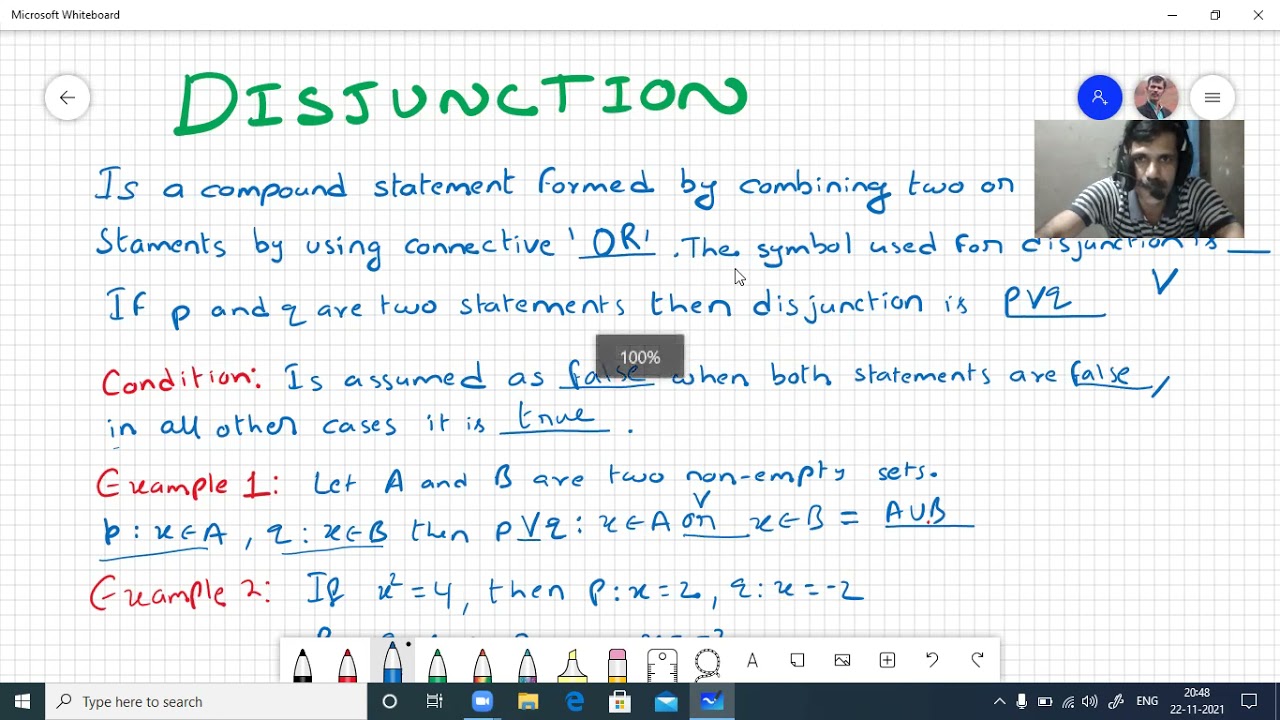 Microsoft Whiteboard
DISJUNCTION
Is a compound statement formed by combining two or
Staments by using connective 'OR'. The symbol used for disjunction is __
V
If p and q are two statements then disjunction is pVq
100%
Condition: Is assumed as false when both statements are false,
in all other cases it is true.
Example 1: Let A and B are two non-empty sets.
V
p : x∈A, q : x∈B then pVq : x∈A or x∈B = A∪B
Example 2: If x²=4, then p:x=2, q:x=-2
A
Type here to search
ENG
20:48
22-11-2021